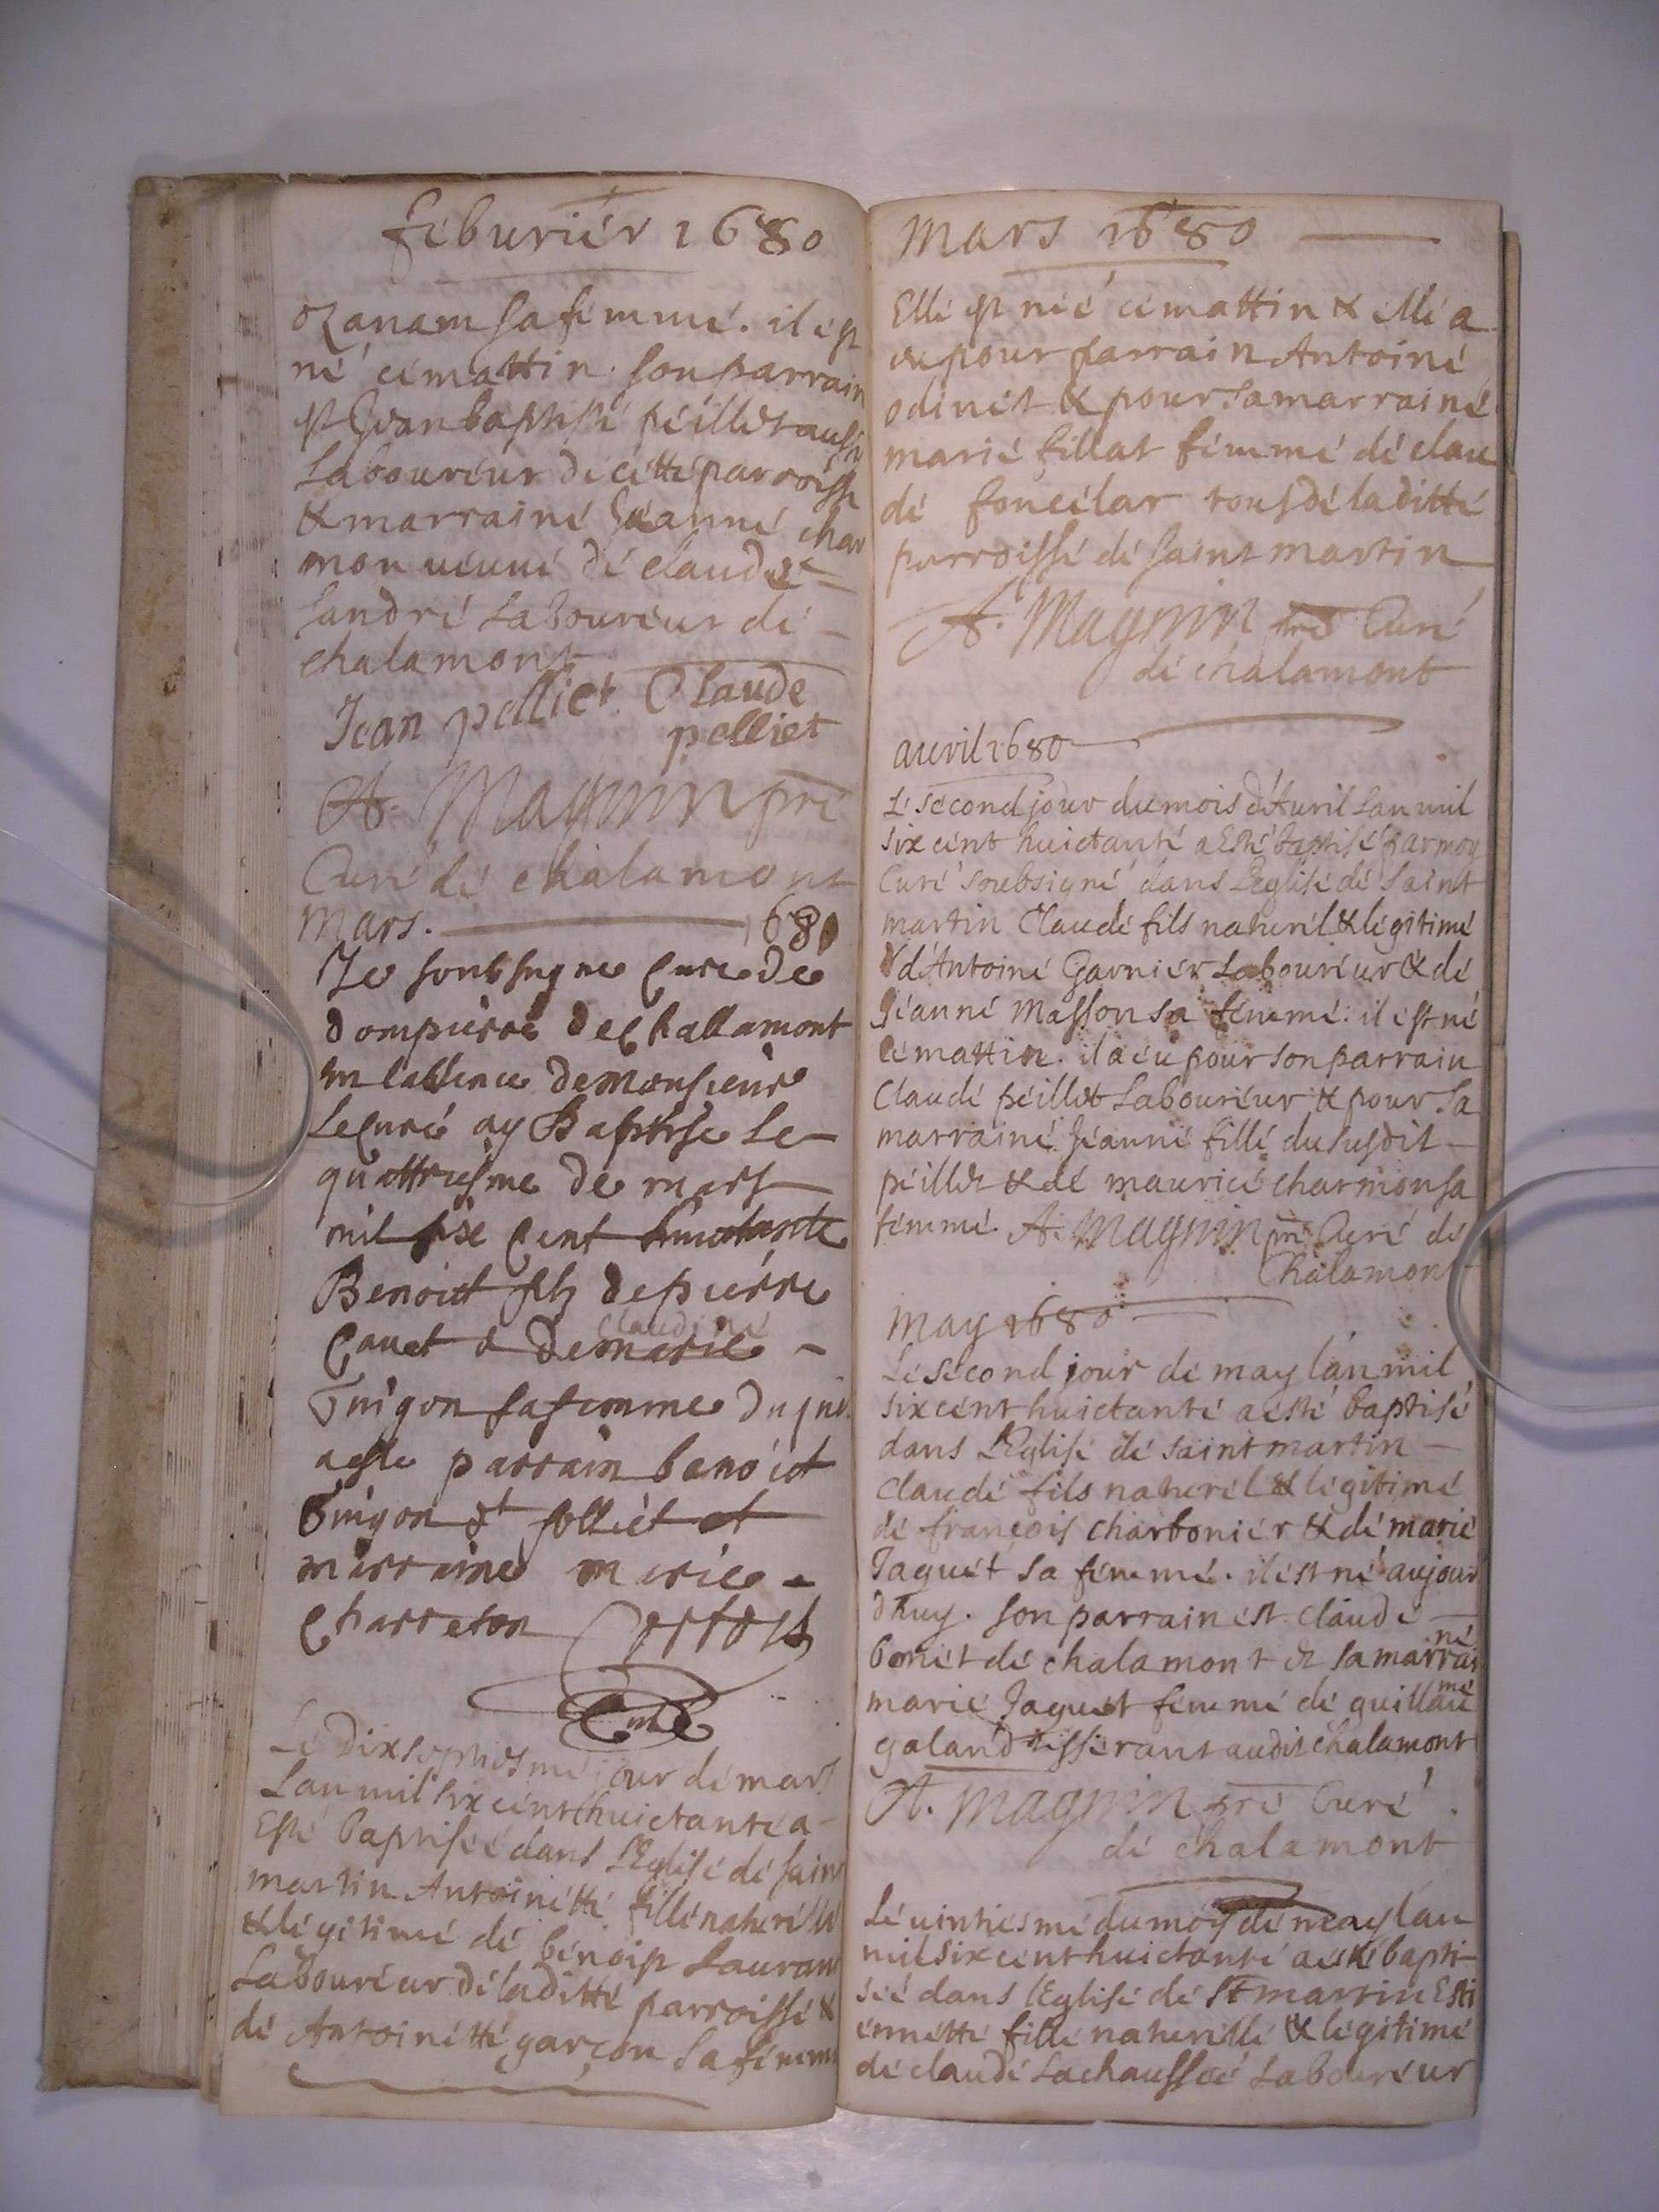 feburiér 1680
ozanam sa femmé. il est
né cé mattin. son parrain
est Jean baptisté péillet aussi
Laboureur dé cetté parroissé
& marrainé Jéanné char
mon ueuué dé claude
Landré Laboureur dé
chalamont
Jean pelliet Claude
pelliet
A. Magnin pré
Curé dé chalamont
Mars. 1680
Je soubsugne Cure de
dompierre de Challamont
en labsence de monsieur
le curé ay Baptise le
quattriesme de mars
mil sise Cent huictante
Benoict filz de pierre
claudiné
Cauet & de marie
Guigon sa femme duquel
a este parrain benoict
Guigon & pelliet et
marraine marie
Charreton
Curé
Lé dix septiesmé jour dé mars
Lan mil six cént huictanté a
Esté baptiséé dans L'Eglisé dé saint
martin Antoinétté fillé naturéllé
& légitimé dé bénoist Lauran
Labouréur dé laditté parroissé &
dé Antoinétté garçon sa fémmé
mars 1680
Ellé est néé cé mattin & éllé a
eu pour parrain Antoiné
odinét & pour sa marrainé
marié fillat fémmé dé clau
dé foncélar tous dé laditté
parroissé dé saint martin
A. Magnin pré Curé
dé chalamont
auril 1680
Lé sécond jour du mois d'Auril Lan mil
six cént huictanté a Esté baptisé par moy
Curé soubsigné dans L'eglisé dé saint
martin Claudé fils naturél & légitimé
d'Antoiné Garniér Labouréur & dé
Jéanné Masson sa fémmé. il est né
cé mattin. il a éu pour son parrain
Claudé péillét Labouréur & pour sa
marrainé Jéanné fillé du susdit
péillét & dé mauricé charmon sa
fémmé. A. Magnin pré Curé dé
Chalamont
may 1680
Lé sécond jour dé may l'an mil
six cént huictanté a ésté baptisé
dans L'Eglisé dé saint martin
claudé fils naturél & légitimé
dé françois charboniér & dé marié
Jaquét sa fémmé. il ést né aujour
dhuy. son parrain ést claudé
né
bonét dé chalamont & sa marrai
mé
marié Jaquét fémmé dé guillau
galand tissérant audit chalamont
A. magnin pré Curé
dé chalamont
Lé uintiésmé du moy dé may lan
mil six cént huictanté a esté bapti
séé dans l'Eglisé dé St martin Esti
énnétté fillé naturéllé & légitimé
dé claudé Lachausséé Labouréur